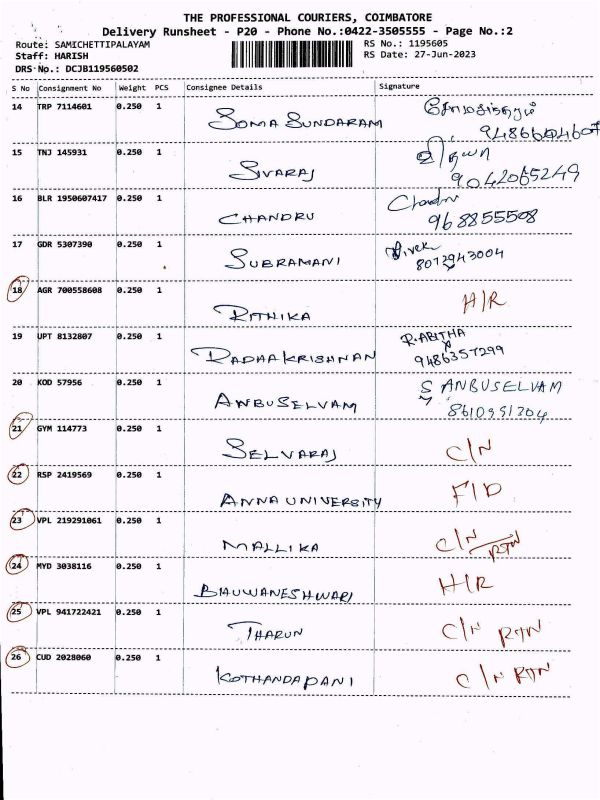 THE PROFESSIONAL COURIERS, COIMBATORE
Delivery Runsheet - P20 - Phone No.:0422-3505555 - Page No.:2
Route: SAMICHETTIPALAYAM
RS No.: 1195605
Staff: HARISH
RS Date: 27-Jun-2023
DRS No.: DCJB119560502
S No Consignment No Weight PCS Consignee Details Signature
14 TRP 7114601 0.250 1 SOMA SUNDARAM சோமசுந்தரம்
9486604607
15 TNJ 145931 0.250 1 SIVARAJ
9042065249
16 BLR 1950607417 0.250 1 CHANDRU Chandru
968855508
17 GDR 5307390 0.250 1 SUBRAMANI Vivek
8072943004
18 AGR 700558608 0.250 1 RITHIKA H/R
19 UPT 8132807 0.250 1 RADHAKRISHNAN R.ABITHA
9486357299
20 KOD 57956 0.250 1 ANBUSELVAM S ANBUSELVAM
8610991204
21 GYM 114773 0.250 1 SELVARAJ C/N
22 RSP 2419569 0.250 1 ANNA UNIVERSITY F/D
23 VPL 219291061 0.250 1 MALLIKA C/N RTN
24 MYD 3038116 0.250 1 BAUWANESHWARI H/R
25 VPL 941722421 0.250 1 THARUN C/N RTN
26 CUD 2028060 0.250 1 KOTHANDAPANI C/N RTN